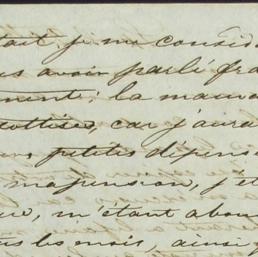 tait, je me considé
us avoir parlé fra
ment; la mauva
sottises, car j'aura
petites dépens
ma pension, j'ét
m'étant abon
les mois, ainsi